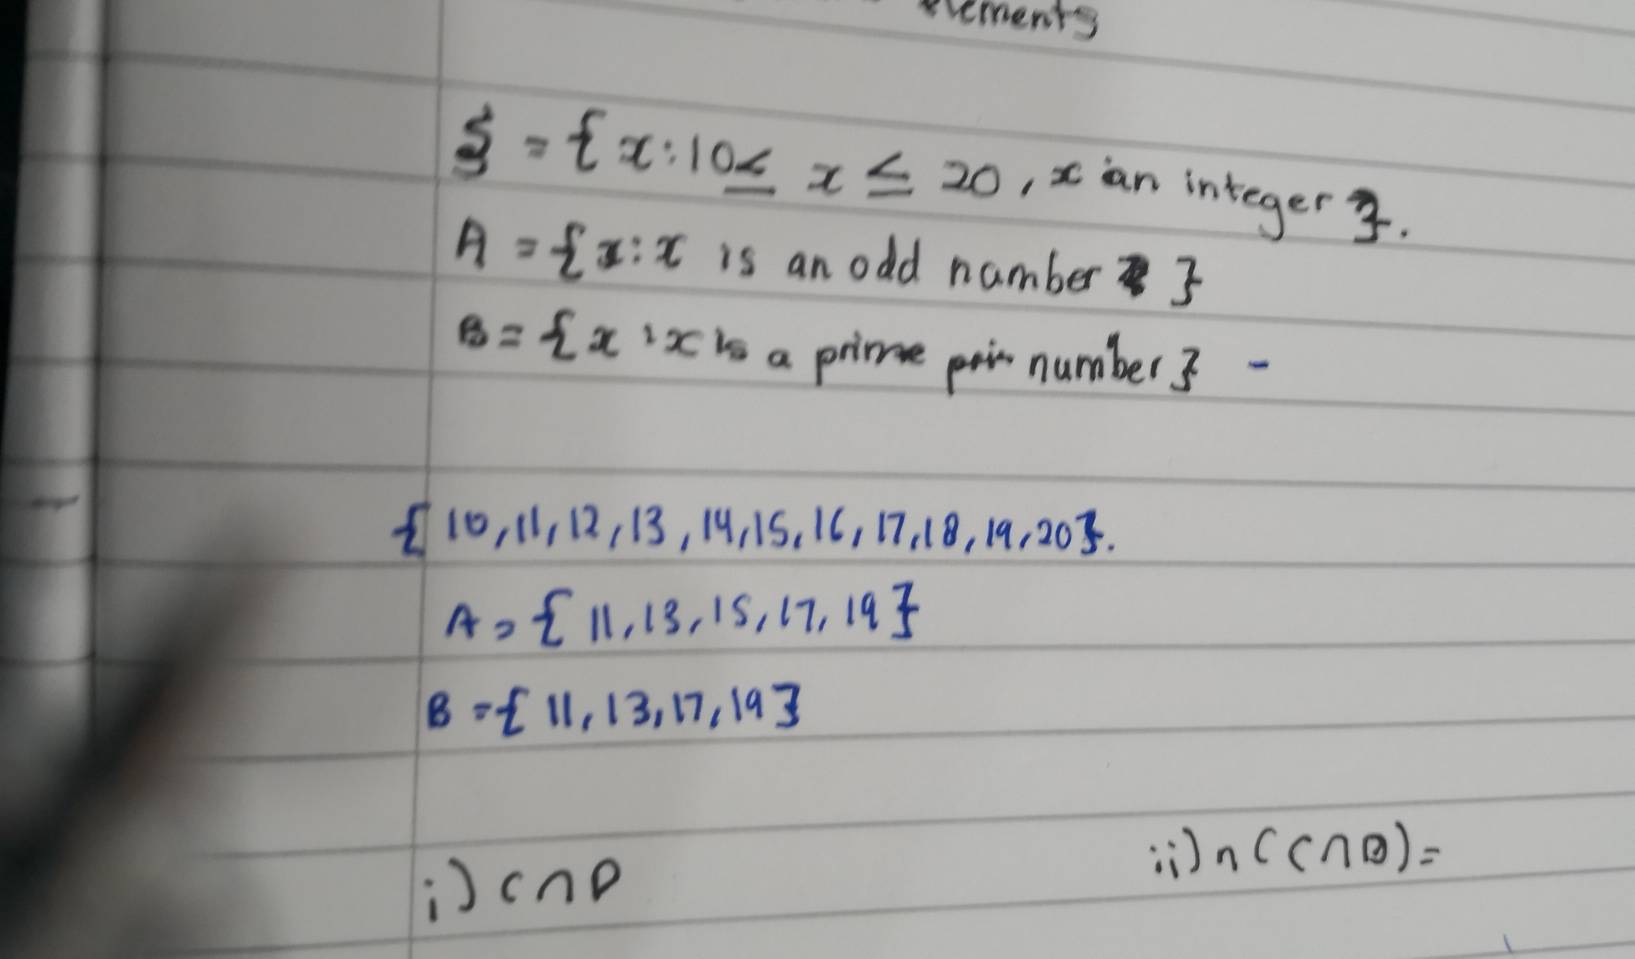 elements
ξ = {x:10≤ x ≤ 20, x an integer }.
A = {x:x is an odd number }
B = {x : x is a prime number} -
{ 10, 11, 12, 13, 14, 15, 16, 17, 18, 19, 20}.
A = { 11, 13, 15, 17, 19 }
B = { 11, 13, 17, 19 }
i) C∩D
ii) n (C∩D) =